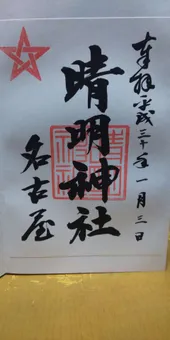 奉拝 平成三十年一月三日
晴明神社
名古屋